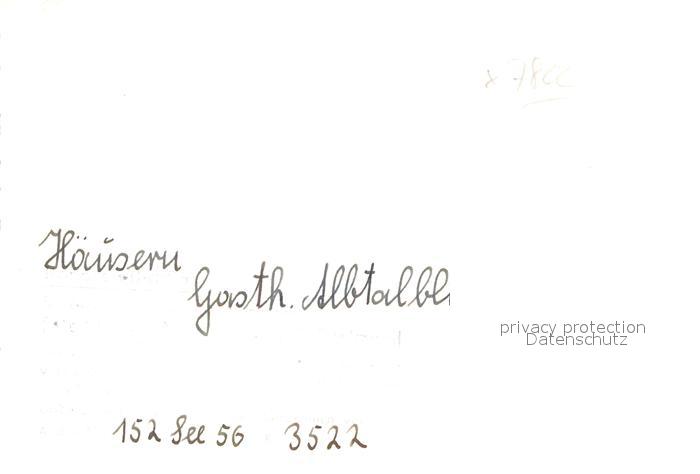 Häusern
Gasth. Albtalbl
privacy protection
Datenschutz
152 See 56 3522